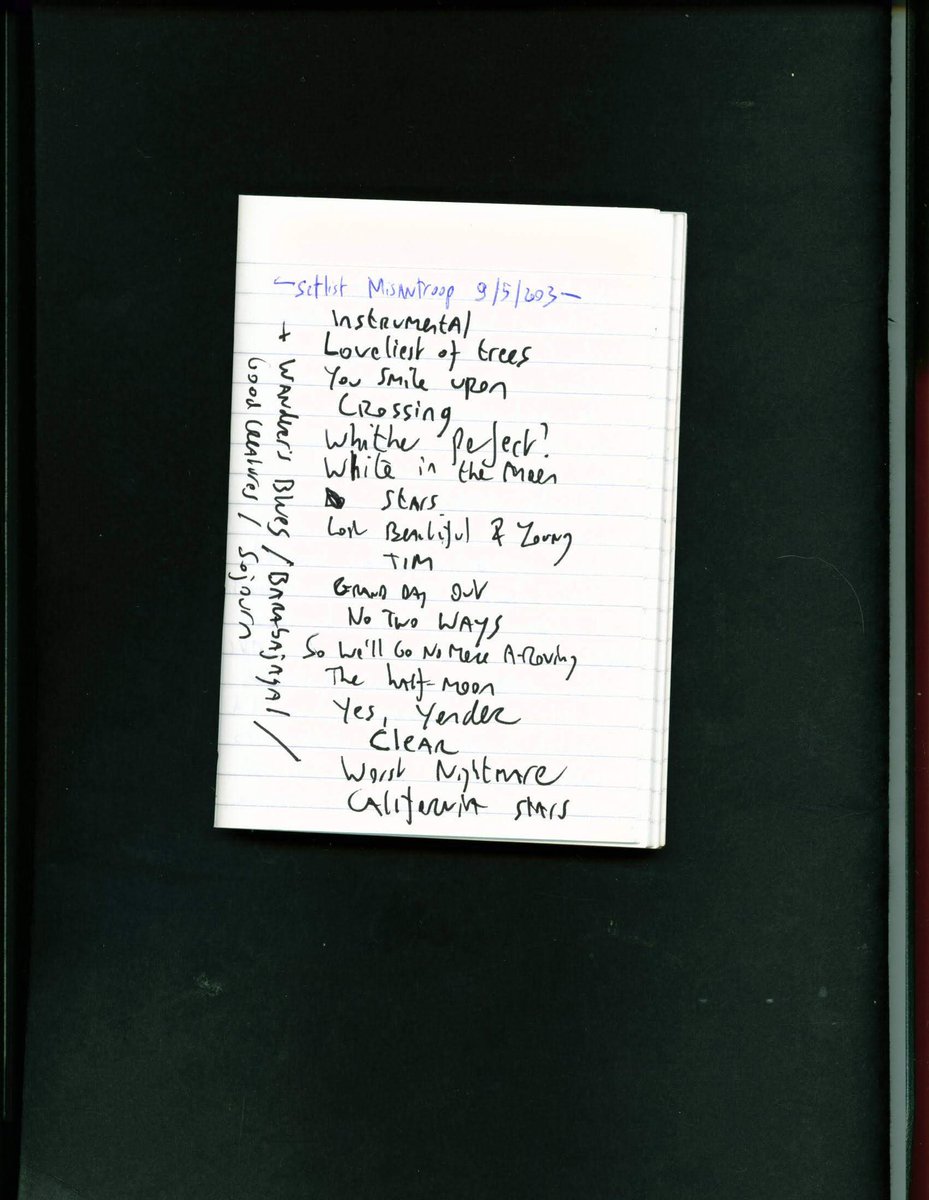 —Setlist Misantroop 9/5/203—
Instrumental
Loveliest of trees
You smile upon
Crossing
Whithe perfect?
White in the Moon
Stars
Beautiful & Young
TIM
Grand Day Out
No Two Ways
So We'll Go No More A-Roving
The half-moon
Yes, Yonder
Clear
Worst Nightmare
California Stars
+ Wanderer's Blues / Barabajagal /
Good Creatures / Sojourn